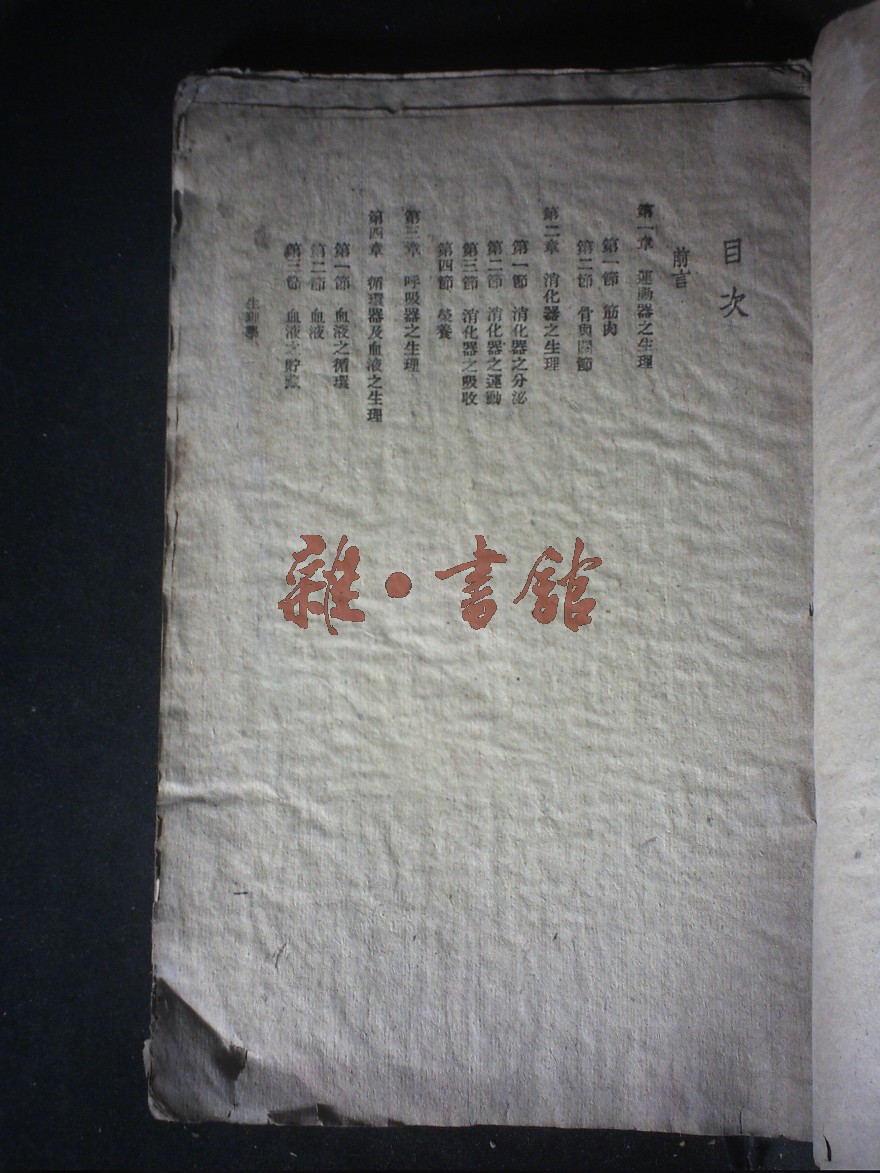 目次
前言
第一章 運動器之生理
第一節 筋肉
第二節 骨與關節
第二章 消化器之生理
第一節 消化器之分泌
第二節 消化器之運動
第三節 消化器之吸收
第四節 榮養
第三章 呼吸器之生理
第四章 循環器及血液之生理
第一節 血液之循環
第二節 血液
第三節 血液之貯藏
生理學
雜·書館